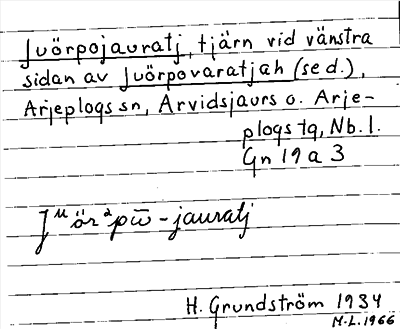 Juörpojauratj, tjärn vid vänstra
sidan av Juörpovaratjah (se d.),
Arjeplogs sn, Arvidsjaurs o. Arje-
plogs tg, Nb. l.
Gn 19 a 3
J ᵘ ör ᵊ pw̅ - jauratj
H. Grundström 1934
M.L. 1966